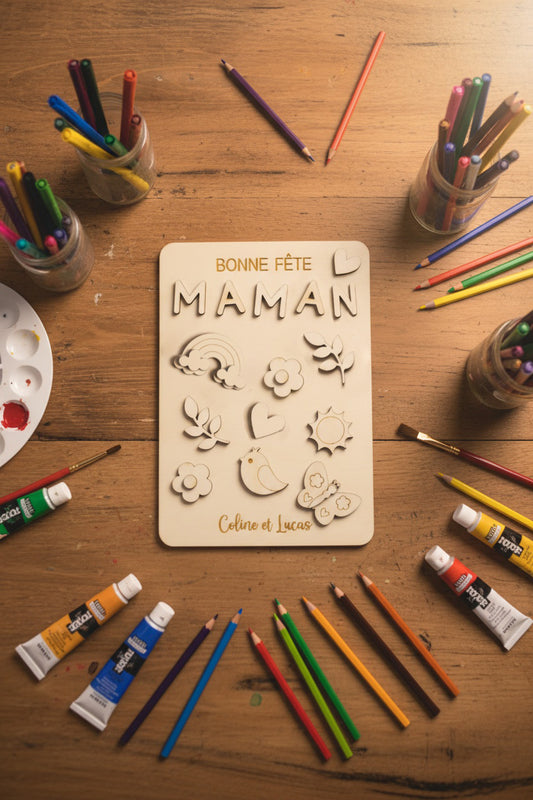 BONNE FÊTE
MAMAN
Coline et Lucas